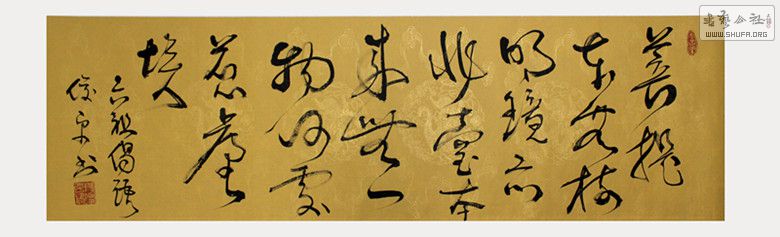 菩提
本无树
明镜亦
非臺本
来無一
物何處
惹塵
埃
六祖偈语
书
书艺公社
WWW.SHUFA.ORG